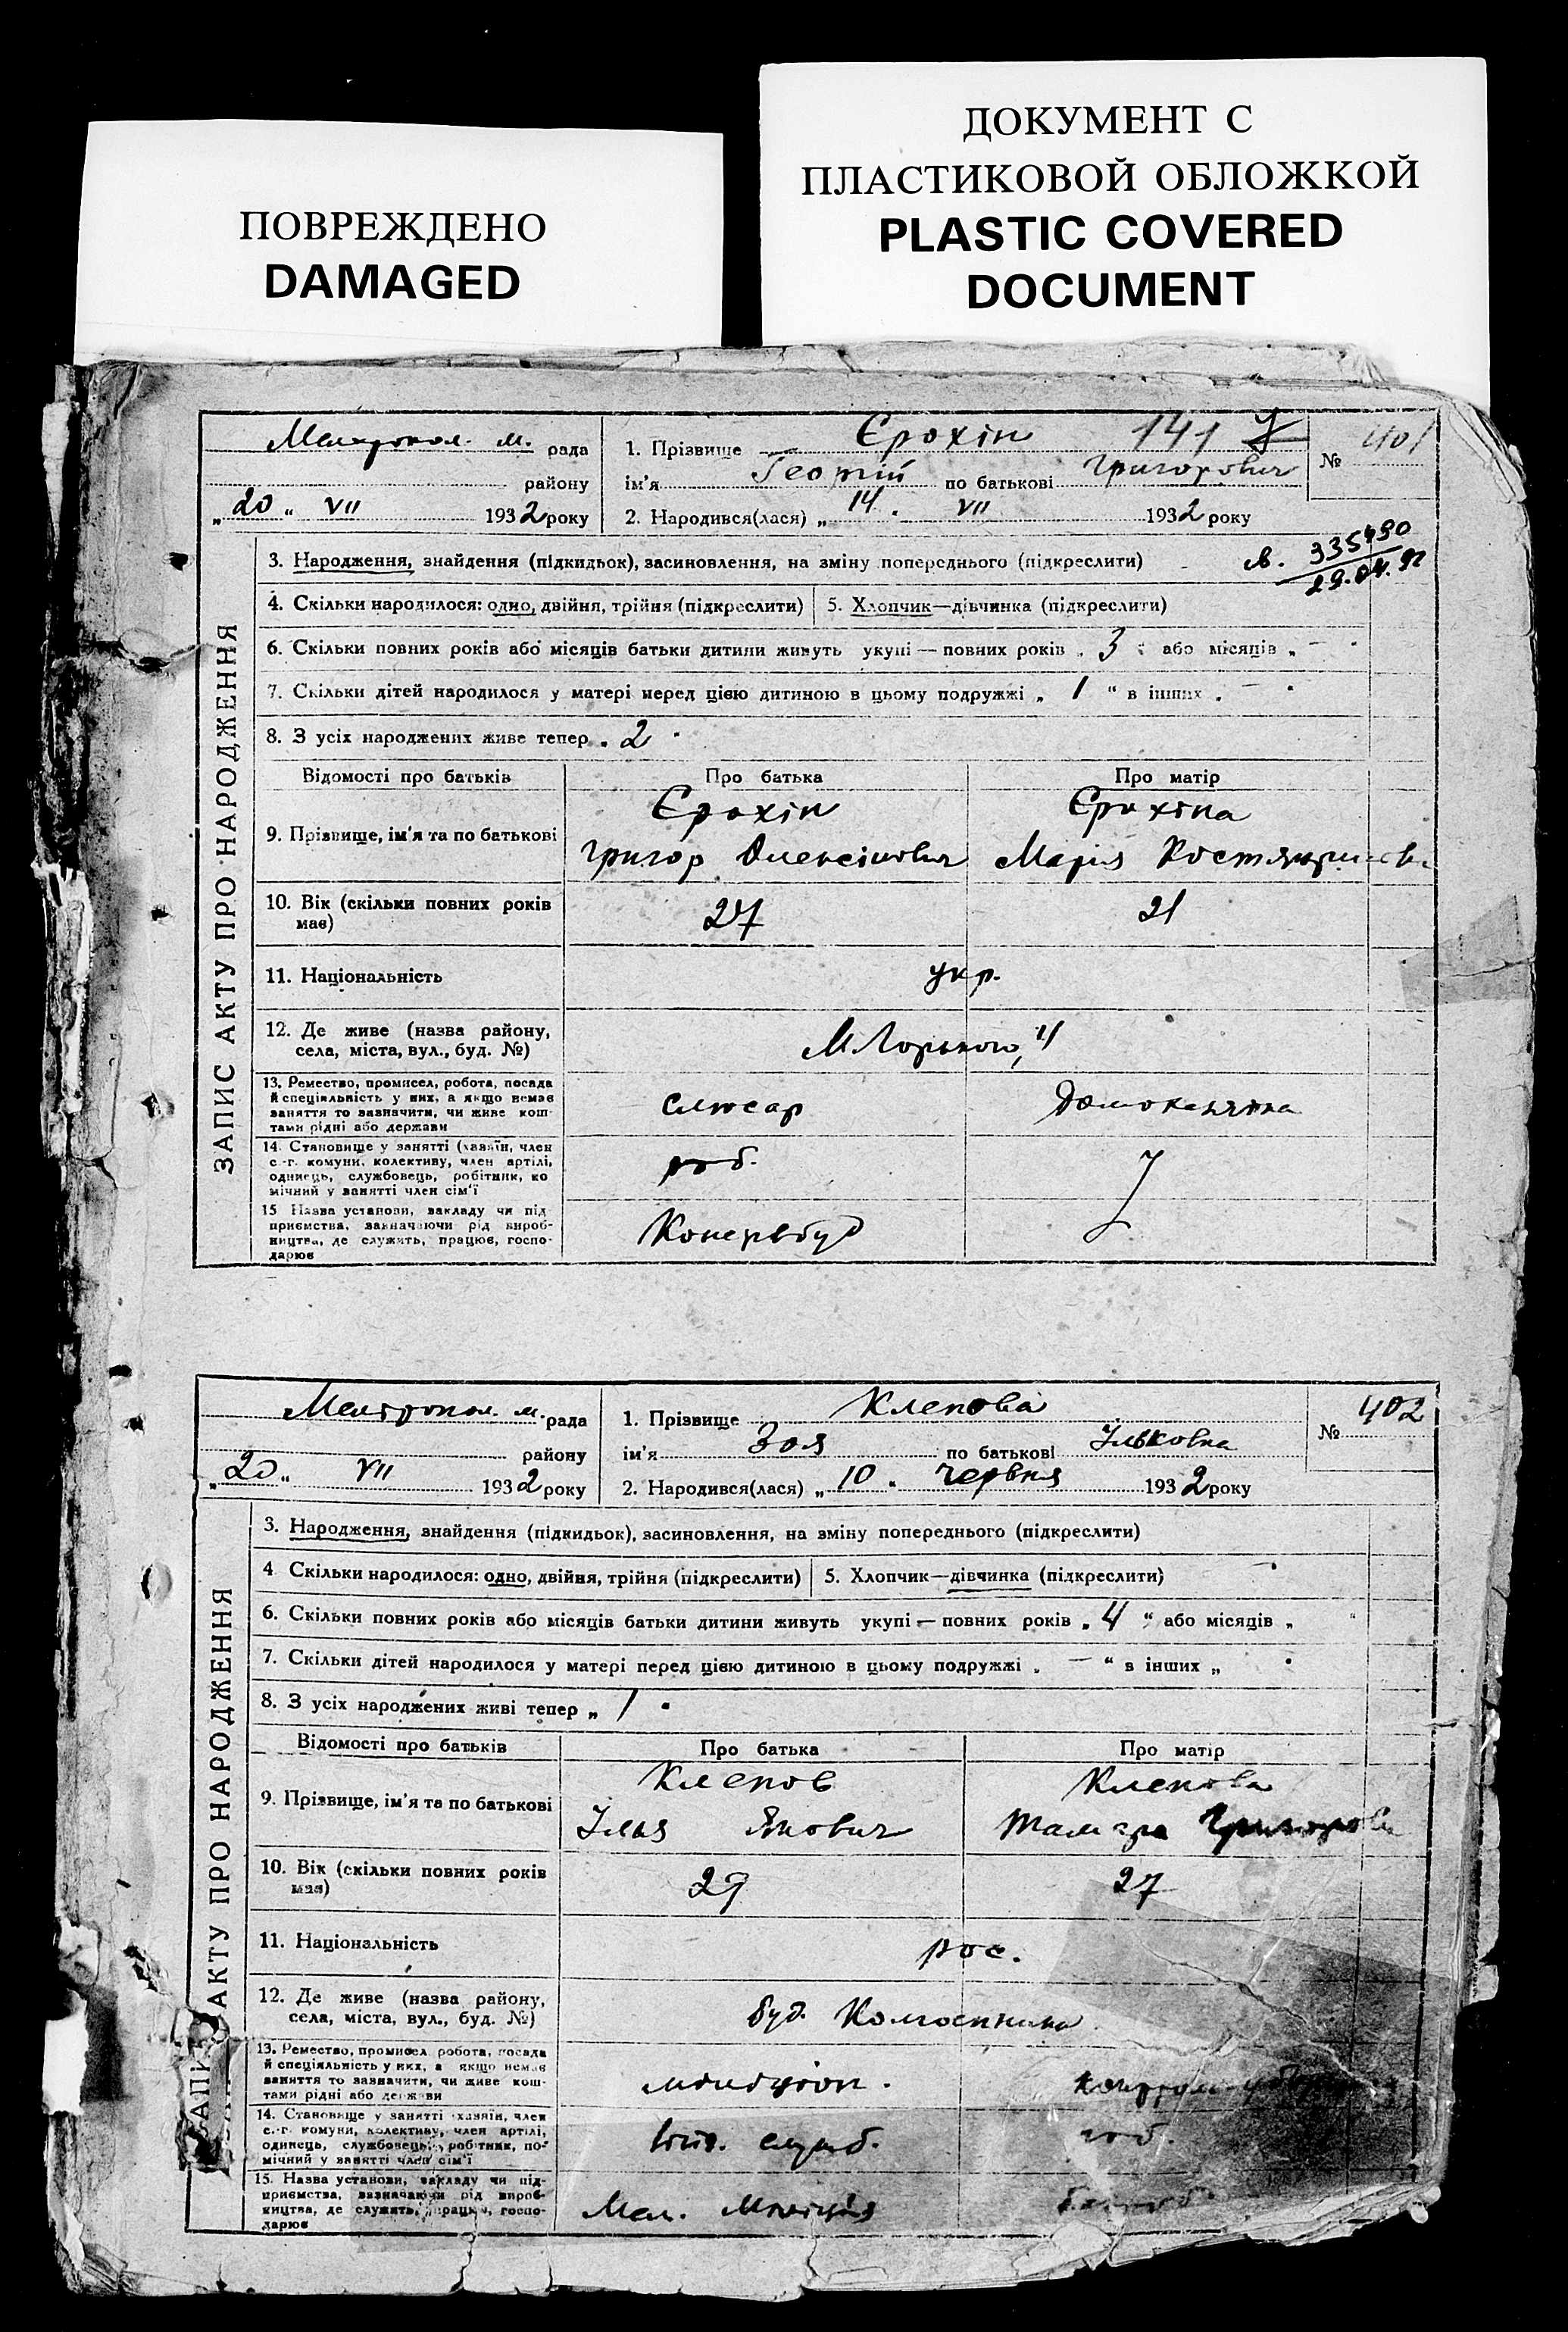 ПОВРЕЖДЕНО
DAMAGED
ДОКУМЕНТ С
ПЛАСТИКОВОЙ ОБЛОЖКОЙ
PLASTIC COVERED
DOCUMENT
ЗАПИС АКТУ ПРО НАРОДЖЕННЯ
м. рада
району
„20“ VII 1932 року
1. Прізвище Єрохін 141
ім'я Георгій по батькові Григорович
2. Народився(лася) „14“ VII 1932 року
№ 401
3. Народження, знайдення (підкидьок), засиновлення, на зміну попереднього (підкреслити)
29.04.92
4. Скільки народилося: одно, двійня, трійня (підкреслити) 5. Хлопчик—дівчинка (підкреслити)
6. Скільки повних років або місяців батьки дитини живуть укупі — повних років „3“ або місяців „—“
7. Скільки дітей народилося у матері перед цією дитиною в цьому подружжі „1“ в інших „—“
8. З усіх народжених живе тепер „2“
Відомості про батьків Про батька Про матір
9. Прізвище, ім'я та по батькові
Єрохін Єрохіна
Григор Олексійович Марія
10. Вік (скільки повних років має) 27 21
11. Національність укр.
12. Де живе (назва району,
села, міста, вул., буд. №) М Горького, 4
13. Ремество, промисел, робота, посада
й спеціяльність у них, а якщо немає
заняття то зазначити, чи живе кош-
тами рідні або держави
слюсар домохазяйка
14. Становище у занятті (хазяїн, член
с.-г. комуни, колективу, член артілі,
одинець, службовець, робітник, по
мічний у занятті член сім'ї
роб.
15 Назва установи, закладу чи під
приємства, зазначаючи рід вироб-
ництва, де служить, працює, госпо-
дарює
ЗАПИС АКТУ ПРО НАРОДЖЕННЯ
Мелітопол. м. рада
району
„20“ VII 1932 року
1. Прізвище Клепова
ім'я Зоя по батькові Ільковна
2. Народився(лася) „10“ червня 1932 року
№ 402
3. Народження, знайдення (підкидьок), засиновлення, на зміну попереднього (підкреслити)
4. Скільки народилося: одно, двійня, трійня (підкреслити) 5. Хлопчик—дівчинка (підкреслити)
6. Скільки повних років або місяців батьки дитини живуть укупі — повних років „4“ або місяців „ “
7. Скільки дітей народилося у матері перед цією дитиною в цьому подружжі „—“ в інших „ “
8. З усіх народжених живі тепер „1“
Відомості про батьків Про батька Про матір
9. Прізвище, ім'я та по батькові
Клепов Клепова
Ілля Якович
10. Вік (скільки повних років має) 29 27
11. Національність рос.
12. Де живе (назва району,
села, міста, вул., буд. №) буд. Колгоспника
13. Ремество, промисел, робота, посада
й спеціяльність у них, а якщо немає
заняття то зазначити, чи живе кош-
тами рідні або держави
міліціон.
14. Становище у занятті хазяїн, член
с.-г. комуни, колективу, член артілі,
одинець, службовець, робітник, по-
мічний у занятті член сім'ї
військ. служб. роб.
15. Назва установи, закладу чи під-
приємства, зазначаючи рід вироб-
ництва, де служить, працює, госпо-
дарює
Мел. Міліція